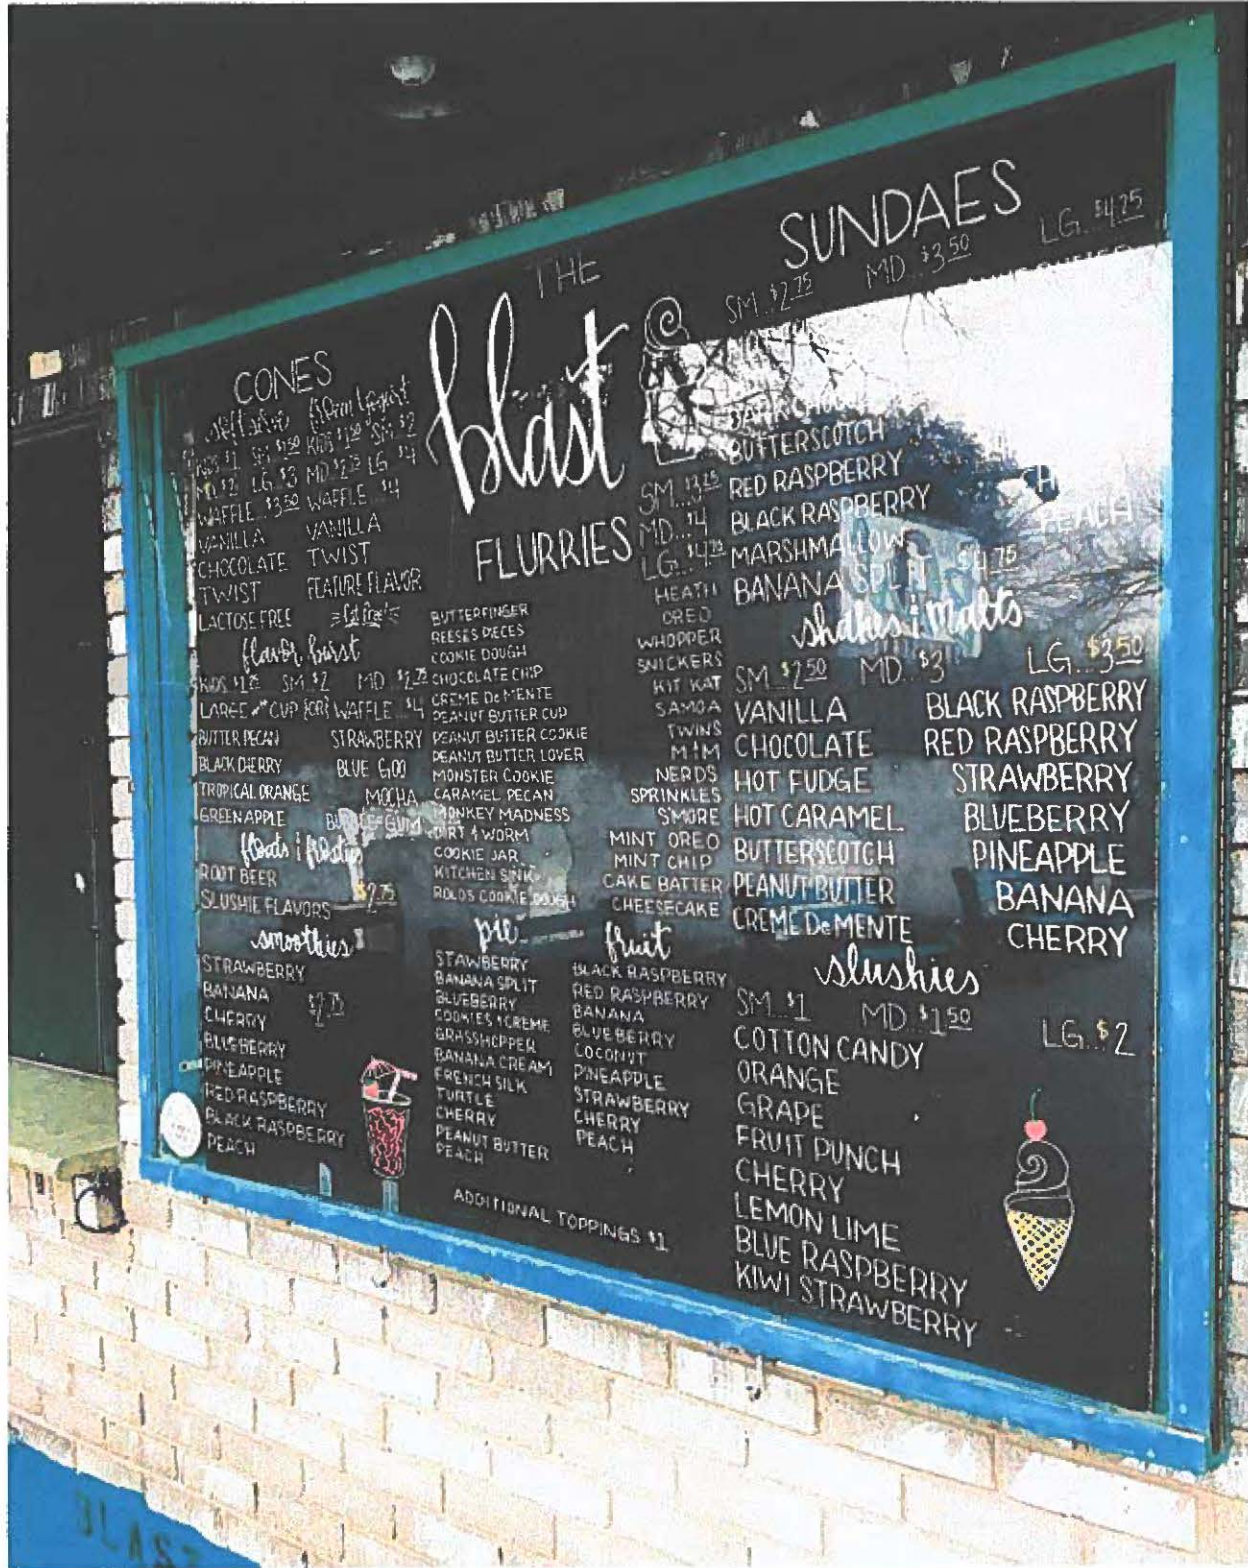 THE
blast
CONES
WAFFLE $3.50 WAFFLE $4
VANILLA VANILLA
CHOCOLATE TWIST
TWIST FEATURE FLAVOR
LACTOSE FREE
flavor burst
SM $2 MD
LARGE CUP WAFFLE $4
BUTTER PECAN STRAWBERRY
BLACK CHERRY BLUE GOO
TROPICAL ORANGE MOCHA
GREEN APPLE
ROOT BEER
SLUSHIE FLAVORS
smoothies
STRAWBERRY
BANANA
CHERRY
BLUEBERRY
PINEAPPLE
RED RASPBERRY
BLACK RASPBERRY
PEACH
FLURRIES
SM..$3.25
MD..$4
LG..
BUTTERFINGER
REESES PIECES
COOKIE DOUGH
CHOCOLATE CHIP
CREME De MENTE
PEANUT BUTTER CUP
PEANUT BUTTER COOKIE
PEANUT BUTTER LOVER
MONSTER COOKIE
CARAMEL PECAN
MONKEY MADNESS
DIRT & WORM
COOKIE JAR
KITCHEN SINK
ROLOS COOKIE DOUGH
HEATH
OREO
WHOPPER
SNICKERS
KIT KAT
SAMOA
TWINS
M&M
NERDS
SPRINKLES
SMORE
MINT OREO
MINT CHIP
CAKE BATTER
CHEESECAKE
pie
STAWBERRY
BANANA SPLIT
BLUEBERRY
COOKIES & CREME
GRASSHOPPER
BANANA CREAM
FRENCH SILK
TURTLE
CHERRY
PEANUT BUTTER
PEACH
fruit
BLACK RASPBERRY
RED RASPBERRY
BANANA
BLUEBERRY
COCONUT
PINEAPPLE
STRAWBERRY
CHERRY
PEACH
ADDITIONAL TOPPINGS $1
SUNDAES
SM..$2.75 MD..$3.50 LG..$4.25
BUTTERSCOTCH
RED RASPBERRY
BLACK RASPBERRY
MARSHMALLOW
BANANA
shakes & malts
SM..$2.50 MD..$3 LG..$3.50
VANILLA
CHOCOLATE
HOT FUDGE
HOT CARAMEL
BUTTERSCOTCH
PEANUT BUTTER
CREME De MENTE
BLACK RASPBERRY
RED RASPBERRY
STRAWBERRY
BLUEBERRY
PINEAPPLE
BANANA
CHERRY
slushies
SM..$1 MD..$1.50 LG..$2
COTTON CANDY
ORANGE
GRAPE
FRUIT PUNCH
CHERRY
LEMON LIME
BLUE RASPBERRY
KIWI STRAWBERRY
BLAST